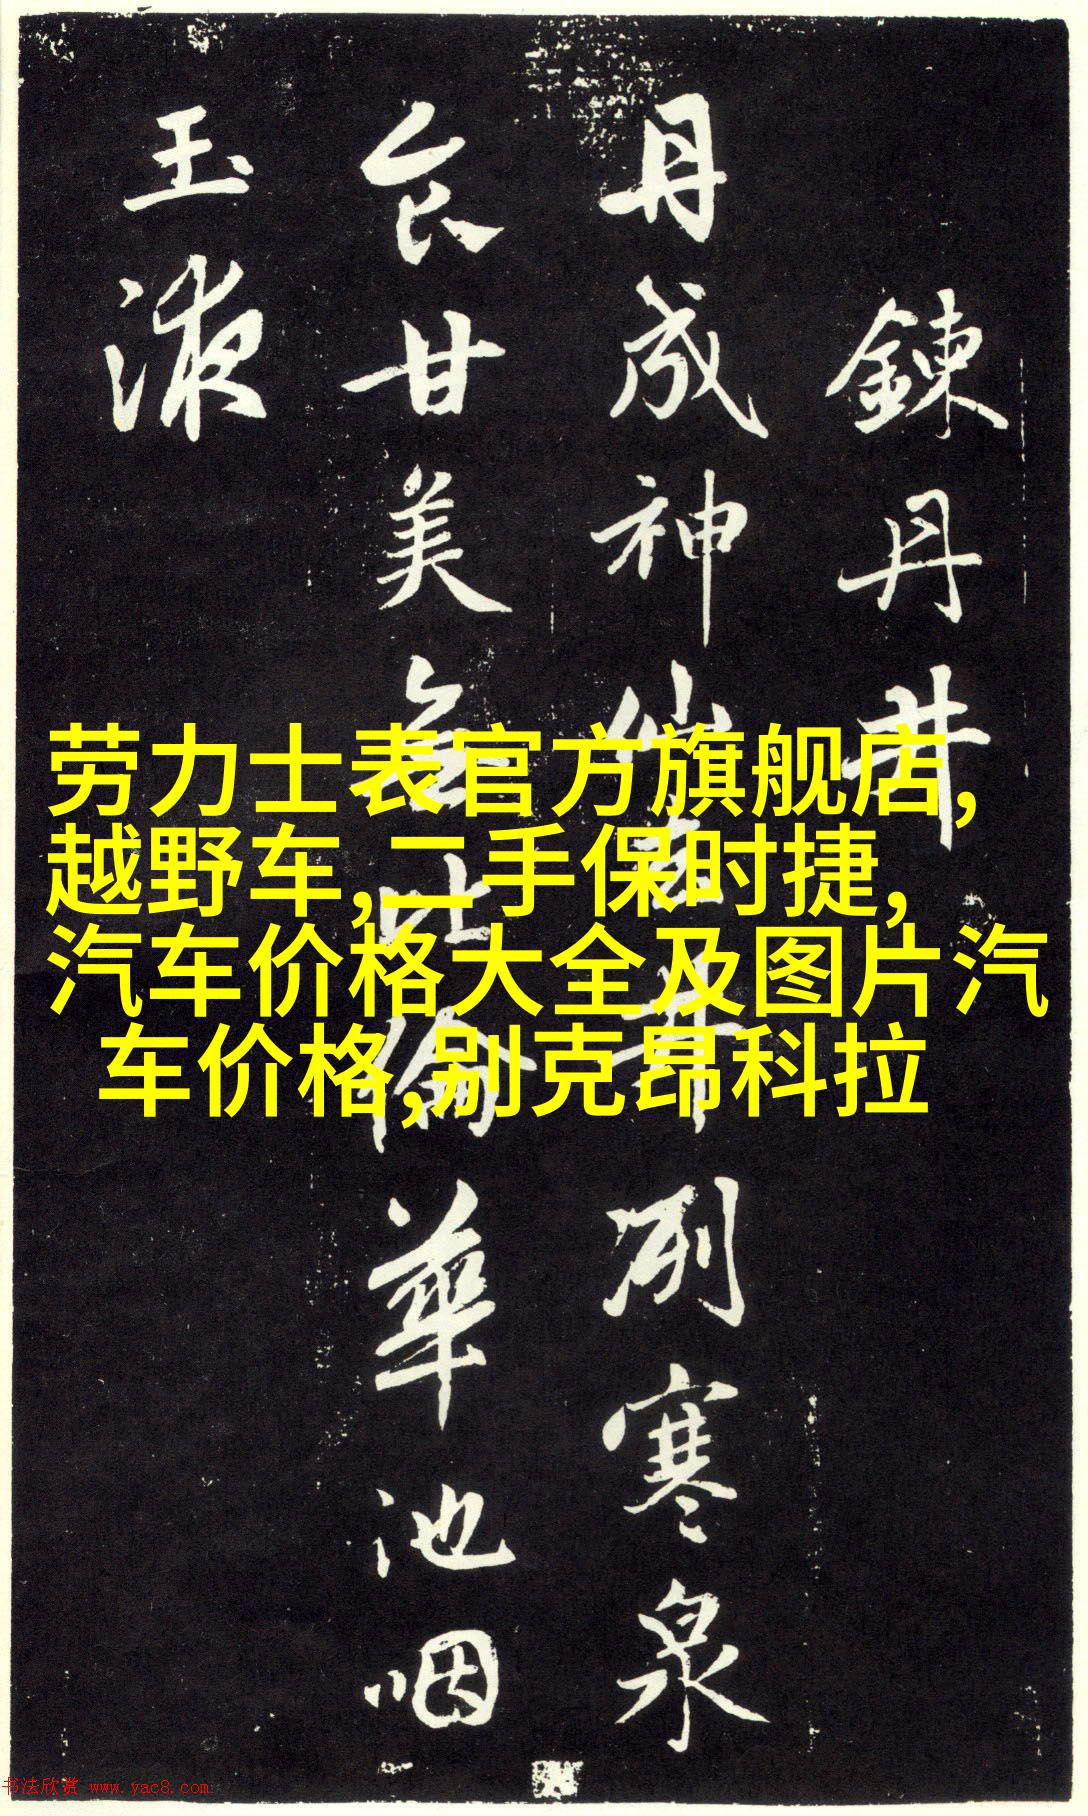 鍊丹井
丹成神仙去井冽寒泉
食甘美無比倫華池咽
玉液
劳力士表官方旗舰店,
越野车,二手保时捷,
汽车价格大全及图片汽
车价格,别克昂科拉
书法欣赏 www.yac8.com